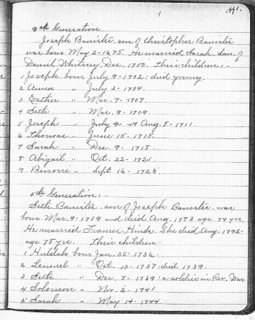 4th Generation
Joseph Banister, son of Christopher Banister
was born May 2-1675. He married Sarah, dau. of
Daniel Whitney Dec. 1703. Their children:
1 Joseph born July 9-1702; died young.
2 Anna " July 2-1704.
3 Esther " Mar. 7-1707.
4 Seth " Mar. 8-1709.
5 Joseph " July
6 Thomas " June 15-1713.
7 Sarah " Dec. 9-1715.
8 Abigail " Oct. 22-1721.
9 " Sept 16-1723.
5th Generation:-
Seth Banister son of Joseph Banister was
born Mar. 8-1709 and died Aug. 1783 age 74 yrs.
He married Hinds. She died Aug. 1792-
age 75 yrs. Their children:
1 Huldah born Jan. 25-1736.
2 Lemuel " Oct. 13-1737; died 1739.
3 Seth " Dec. 7-1739: a soldier in Rev. War
4 Solomon " Nov. 2-1741.
5 Sarah " May 14-1744.